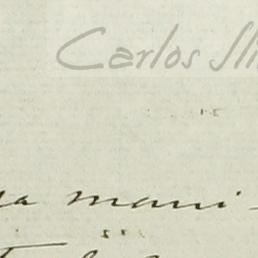 Carlos Sli
ga mani-